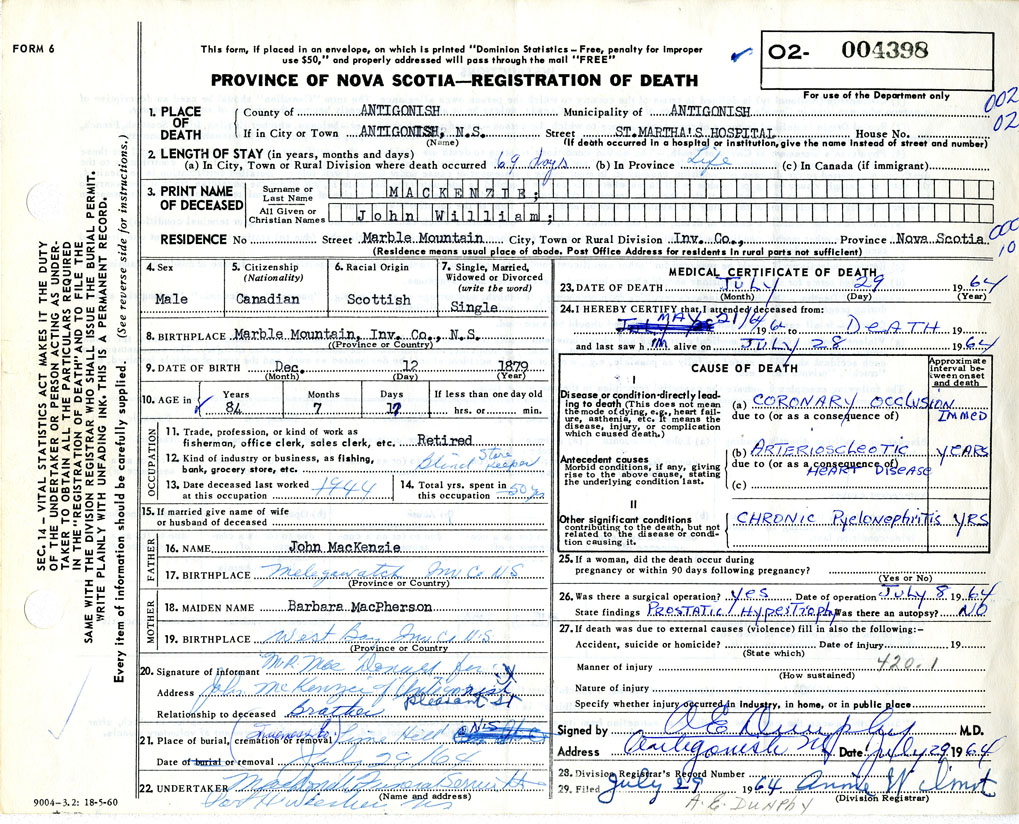 FORM 6
This form, if placed in an envelope, on which is printed "Dominion Statistics – Free, penalty for improper
use $50," and properly addressed will pass through the mail "FREE"
PROVINCE OF NOVA SCOTIA—REGISTRATION OF DEATH
02- 004398
For use of the Department only
002
02
1. PLACE OF DEATH
County of ANTIGONISH Municipality of ANTIGONISH
If in City or Town ANTIGONISH, N.S. Street ST. MARTHA'S HOSPITAL House No.
(Name) (If death occurred in a hospital or institution, give the name instead of street and number)
2. LENGTH OF STAY (in years, months and days)
(a) In City, Town or Rural Division where death occurred 69 days (b) In Province Life (c) In Canada (if immigrant)
3. PRINT NAME OF DECEASED
Surname or Last Name MACKENZIE;
All Given or Christian Names John William;
000
10
RESIDENCE No Street Marble Mountain City, Town or Rural Division Inv. Co., Province Nova Scotia
(Residence means usual place of abode. Post Office Address for residents in rural parts not sufficient)
4. Sex
Male
5. Citizenship
(Nationality)
Canadian
6. Racial Origin
Scottish
7. Single, Married,
Widowed or Divorced
(write the word)
Single
8. BIRTHPLACE Marble Mountain, Inv. Co., N.S.
(Province or Country)
9. DATE OF BIRTH Dec. 12 1879
(Month) (Day) (Year)
10. AGE in Years Months Days If less than one day old
84 7 17 hrs. or min.
OCCUPATION
11. Trade, profession or kind of work as
fisherman, office clerk, sales clerk, etc. Retired
12. Kind of industry or business, as fishing,
bank, grocery store, etc. Blind Store Keeper
13. Date deceased last worked
at this occupation 1944
14. Total yrs. spent in
this occupation 50 ys
15. If married give name of wife
or husband of deceased
FATHER
16. NAME John MacKenzie
17. BIRTHPLACE Inv Co N S
(Province or Country)
MOTHER
18. MAIDEN NAME Barbara MacPherson
19. BIRTHPLACE West Bay Inv Co N S
(Province or Country)
20. Signature of informant
Address Antigonish
Pleasant St
Relationship to deceased Brother
21. Place of burial, cremation or removal
Date of burial or removal July 29/64
22. UNDERTAKER
(Name and address)
9004–3.2: 18-5-60
MEDICAL CERTIFICATE OF DEATH
23. DATE OF DEATH JULY 29 1964
(Month) (Day) (Year)
24. I HEREBY CERTIFY that I attended deceased from:
MAY 21/64 19 to DEATH 19
and last saw h im alive on JULY 28 1964
CAUSE OF DEATH
Approximate
interval be-
tween onset
and death
I
Disease or condition directly lead-
ing to death (This does not mean
the mode of dying, e.g., heart fail-
ure, asthenia, etc. It means the
disease, injury, or complication
which caused death.)
(a) CORONARY OCCLUSION
due to (or as a consequence of) IMMED
Antecedent causes
Morbid conditions, if any, giving
rise to the above cause, stating
the underlying condition last.
(b) ARTERIOSCLEOTIC YEARS
due to (or as a consequence of)
HEART DISEASE
(c)
II
Other significant conditions
contributing to the death, but not
related to the disease or condi-
tion causing it.
CHRONIC Pyelonephritis YRS
25. If a woman, did the death occur during
pregnancy or within 90 days following pregnancy?
(Yes or No)
26. Was there a surgical operation? Yes Date of operation JULY 8 1964
State findings PROSTATIC HYPESTROPHY Was there an autopsy? NO
27. If death was due to external causes (violence) fill in also the following:–
Accident, suicide or homicide? Date of injury 19
(State which)
Manner of injury 420.1
(How sustained)
Nature of injury
Specify whether injury occurred in industry, in home, or in public place
Signed by A E Dunphy M.D.
Address Antigonish NS Date July 29 1964
28. Division Registrar's Record Number
29. Filed July 29 1964 Annie W
(Division Registrar)
A. E. DUNPHY
SEC. 14 – VITAL STATISTICS ACT MAKES IT THE DUTY
OF THE UNDERTAKER OR PERSON ACTING AS UNDER-
TAKER TO OBTAIN ALL THE PARTICULARS REQUIRED
IN THE "REGISTRATION OF DEATH" AND TO FILE THE
SAME WITH THE DIVISION REGISTRAR WHO SHALL ISSUE THE BURIAL PERMIT.
WRITE PLAINLY WITH UNFADING INK. THIS IS A PERMANENT RECORD.
Every item of information should be carefully supplied. (See reverse side for instructions.)